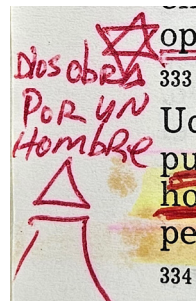 Dios obra
Por un
Hombre
op
333
Uc
pu
ho
pe
334